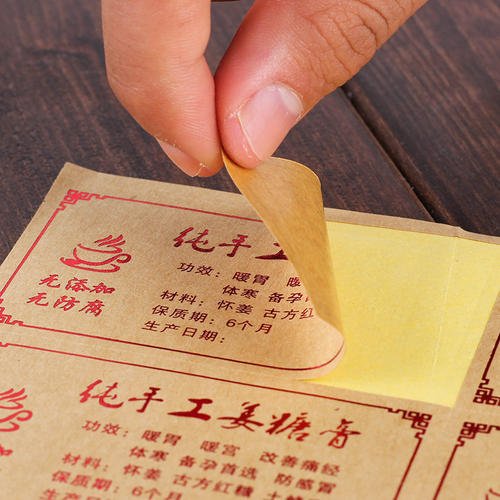 纯手工
无添加
无防腐
功效：暖胃 暖
体寒 备孕
材料：怀姜 古方红
保质期：6个月
生产日期：
纯手工姜糖膏
功效：暖胃 暖宫 改善痛经
体寒 备孕首选 防感冒
材料：怀姜 古方红糖
保质期：6个月
生产日期：